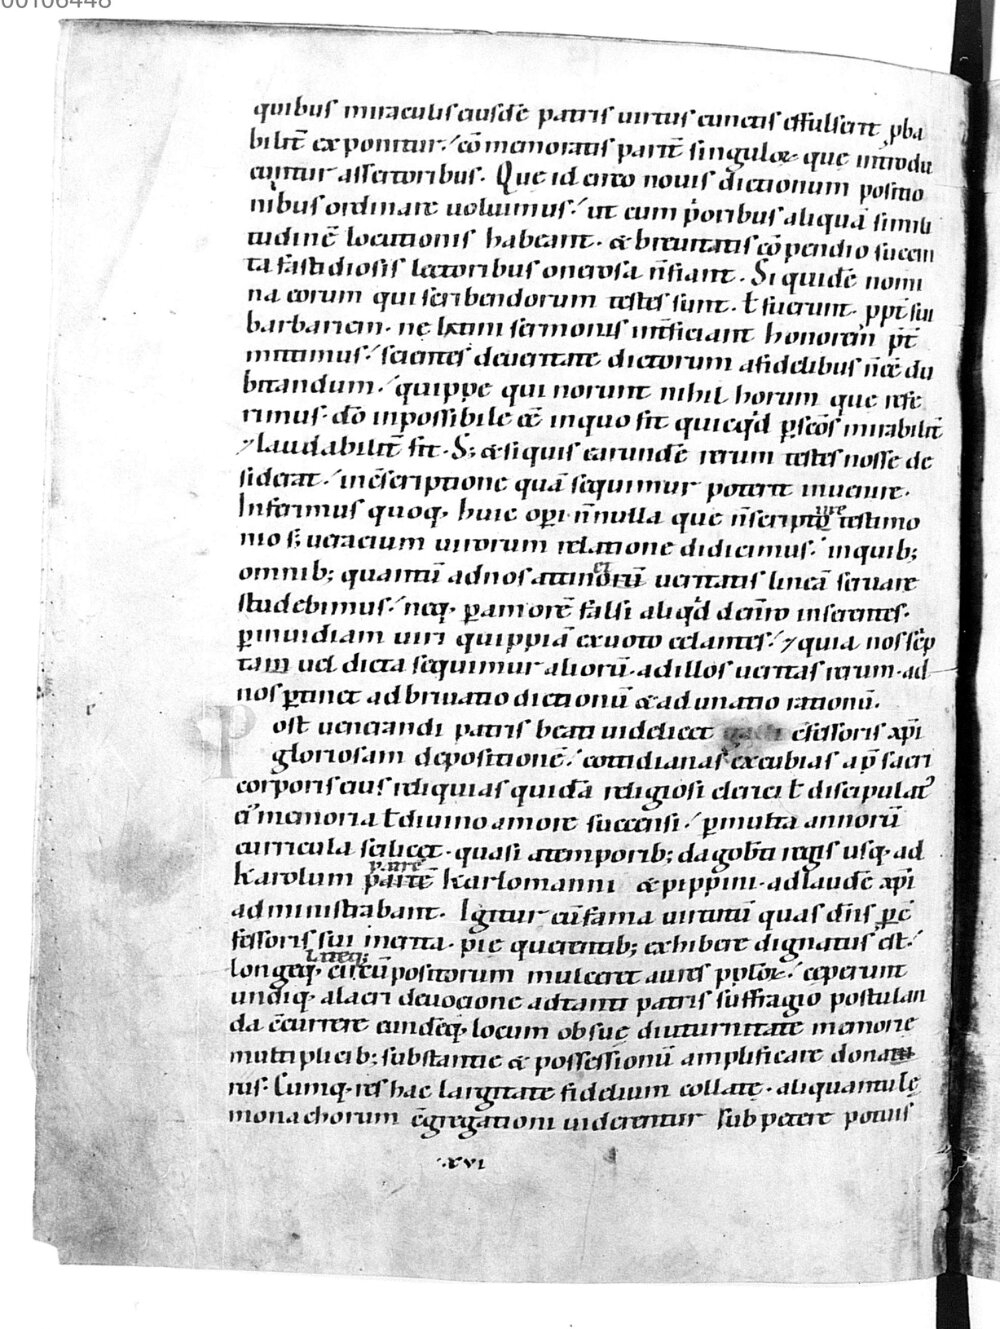 00106448
quibus miraculis eiusdē patris uirtus cunctis effulserit ꝓba
bilit̄ exponitur. cō memoratis parit̄ singuloꝝ que introdu
cuntur assertoribus. Que id circo nouis dictionum positio
nibus ordinare uoluimus. ut cum p̓oribus aliquā simili
tudinē locutionis habeant. & breuitatis cō pendio succin
ta fastidiosis lectoribus onerosa n̄ fiant. Si quidē nomi
na eorum qui scribendorum testes sunt. ł fuerunt. ppt̄ sui
barbariem. ne latini sermonis inficiant honorem p̄t
mittimus. scientes de ueritate dictorum a fidelibus n̄ eē du
bitandum. quippe qui norunt nihil horum que refe
rimus. dō inpossibile eē in quo fit quicq̓d ꝑ sc̄os mirabilit̄
⁊ laudabilit̄ fit. S; & si quis earundē rerum testes nosse de
siderat. in ēscriptione quā sequimur poterit inuenire.
Inserimus quoq. huic oꝑi n̄nulla que n̄ scriptoꝝ testimo
ure
nio s; ueracium uirorum relatione didicimus. in quib;
omnib; quantū ad nos attinorū ueritatis lineā seruare
et
studebimus. neq. ꝑ amorē falsi aliq̓d de n̄ro inserentes.
ꝑ inuidiam uiri quippiā ex uoto celantes. ⁊ quia nos sc̓p
tam uel dicta sequimur aliorū. ad illos ueritas rerum. ad
nos ꝑtinet adbreuiatio dictionū & adunatio rationū.
Post uenerandi patris beati uidelicet galli c̄fessoris xp̄i
gloriosam depositionē. cottidianas excubias ap̄ sacri
corporis eius reliquias quidā religiosi clerici ł discipulat᷒
ei᷒ memoria ł diuino amore succensi. ꝑ multa annorū
curricula scilicet. quasi a temporib; dagob̄ti regis usq. ad
karolum partē karlomanni & pippini. ad laudē xp̄i
patrē
administrabant. Igitur cū fama uirtutū quas dn̄s ꝑ c̄
fessoris sui merita. pie querentib; exhibere dignatus est.
longeq. circū positorum mulceret aures pploꝝ. ceperunt
Lateq;
undiq. alacri deuocione ad tanti patris suffragio postulan
da c̄currere eundēq. locum ob suę diuturnitate memorie
multiplicib; substantie & possessionū amplificare donatiu
nis. Cumq. res hac largitate fidelium collatę. aliquantulę
monachorum c̄gregationi uiderentur subpetere potuis
.xvi